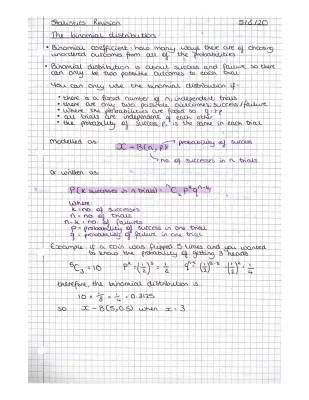 Statistics Revision 5/6/20
The binomial distribution
• Binomial coefficient: how many ways there are of choosing
unordered outcomes from all of the probabilities
• Binomial distribution is about success and failure so there
can only be two possible outcomes to each trial
You can only use the binomial distribution if:
• there is a fixed number of n independent trials
• there are only two possible outcomes: success/failure
• where the probabilities are fixed so q=1-p
• all trials are independent of each other
• the probability of success, p, is the same in each trial
modelled as: probability of success
X ~ B(n, p)
no of successes in n trials
or written as:
P(k successes in n trials) = ⁿCₖ pᵏ qⁿ⁻ᵏ
Where
k = no. of successes
n = no. of trials
n-k = no. of failures
p = probability of success in one trial
q = probability of failure in one trial
Example if a coin was flipped 5 times and you wanted
to know the probability of getting 3 heads
⁵C₃ = 10 pᵏ = (1/2)³ = 1/8 qⁿ⁻ᵏ = (1/2)⁵⁻³ = (1/2)² = 1/4
therefore, the binomial distribution is
10 × 1/8 × 1/4 = 0.3125
so X ~ B(5, 0.5) when x = 3